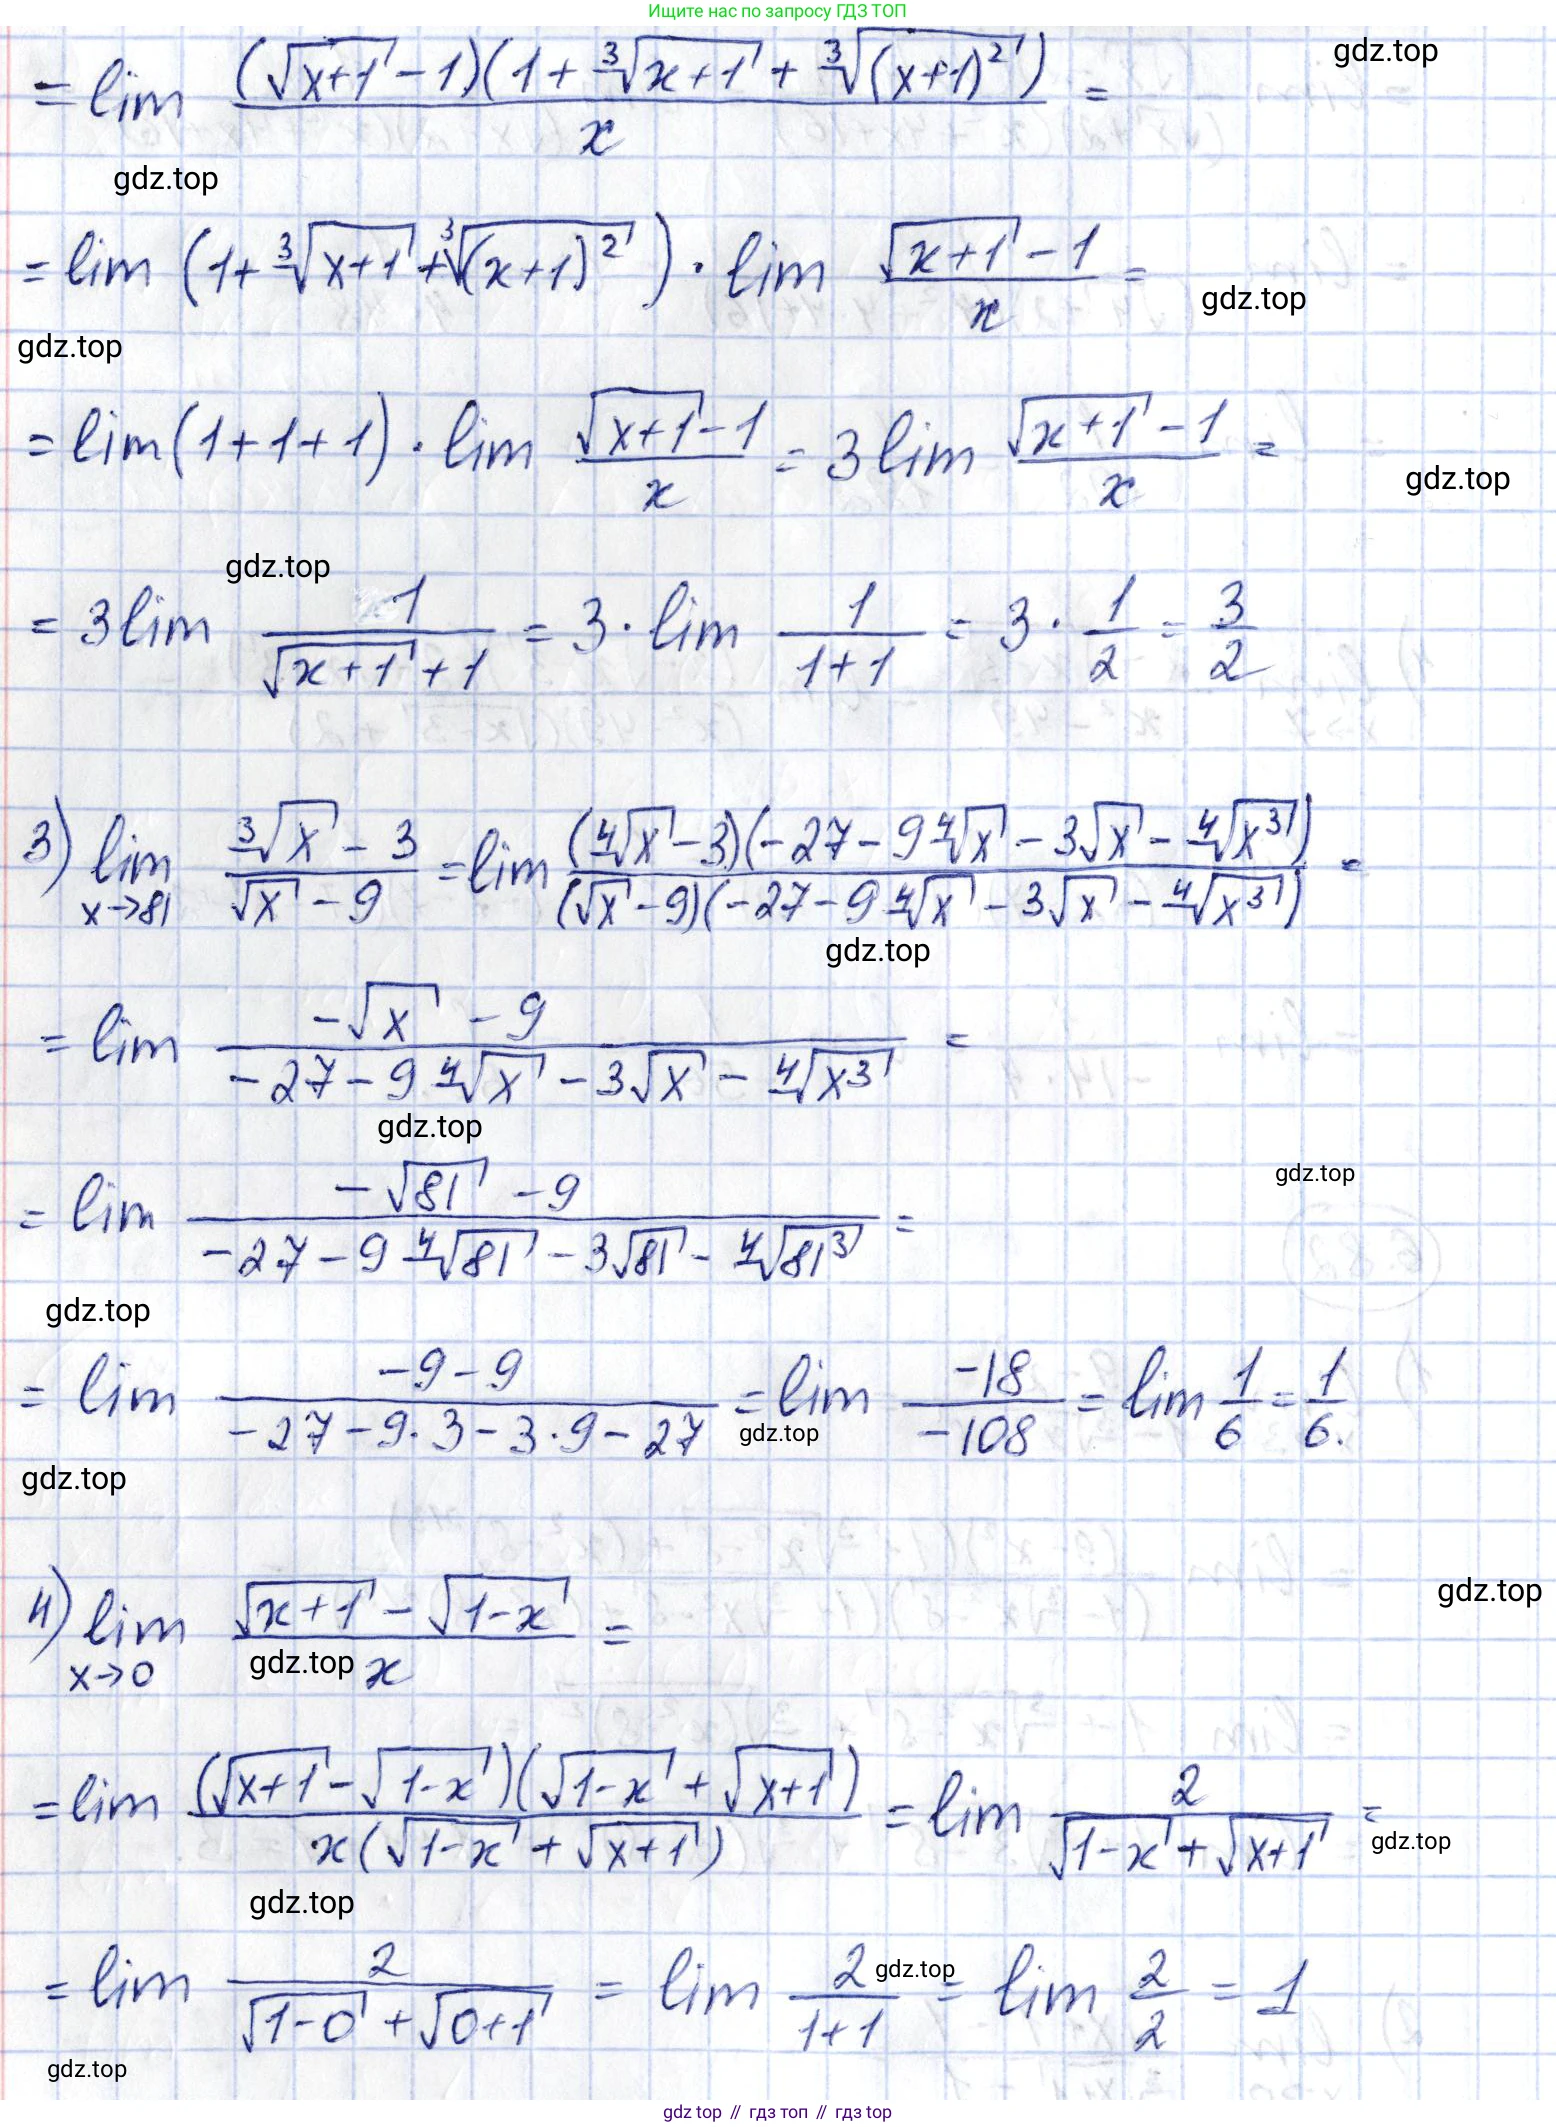 Ищите нас по запросу ГДЗ ТОП
= lim ((√(x+1) - 1)(1 + ∛(x+1) + ∛((x+1)²))) / x =
gdz.top
gdz.top
= lim (1 + ∛(x+1) + ∛((x+1)²)) · lim (√(x+1) - 1) / x =
gdz.top
gdz.top
= lim (1+1+1) · lim (√(x+1) - 1) / x = 3 lim (√(x+1) - 1) / x =
gdz.top
gdz.top
= 3 lim 1 / (√(x+1) + 1) = 3 · lim 1 / (1+1) = 3 · 1/2 = 3/2
3) lim x→81 (∛x - 3) / (√x - 9) = lim ((∜x - 3)(-27 - 9∜x - 3√x - ∜(x³))) / ((√x - 9)(-27 - 9∜x - 3√x - ∜(x³))) =
gdz.top
= lim (-√x - 9) / (-27 - 9∜x - 3√x - ∜(x³)) =
gdz.top
= lim (-√81 - 9) / (-27 - 9∜81 - 3√81 - ∜(81³)) =
gdz.top
gdz.top
= lim (-9 - 9) / (-27 - 9·3 - 3·9 - 27) = lim -18 / -108 = lim 1/6 = 1/6.
gdz.top
gdz.top
4) lim x→0 (√(x+1) - √(1-x)) / x =
gdz.top
gdz.top
= lim ((√(x+1) - √(1-x))(√(1-x) + √(x+1))) / (x(√(1-x) + √(x+1))) = lim 2 / (√(1-x) + √(x+1)) =
gdz.top
gdz.top
= lim 2 / (√(1-0) + √(0+1)) = lim 2 / (1+1) = lim 2/2 = 1
gdz.top
gdz.top
gdz top // гдз топ // гдз top